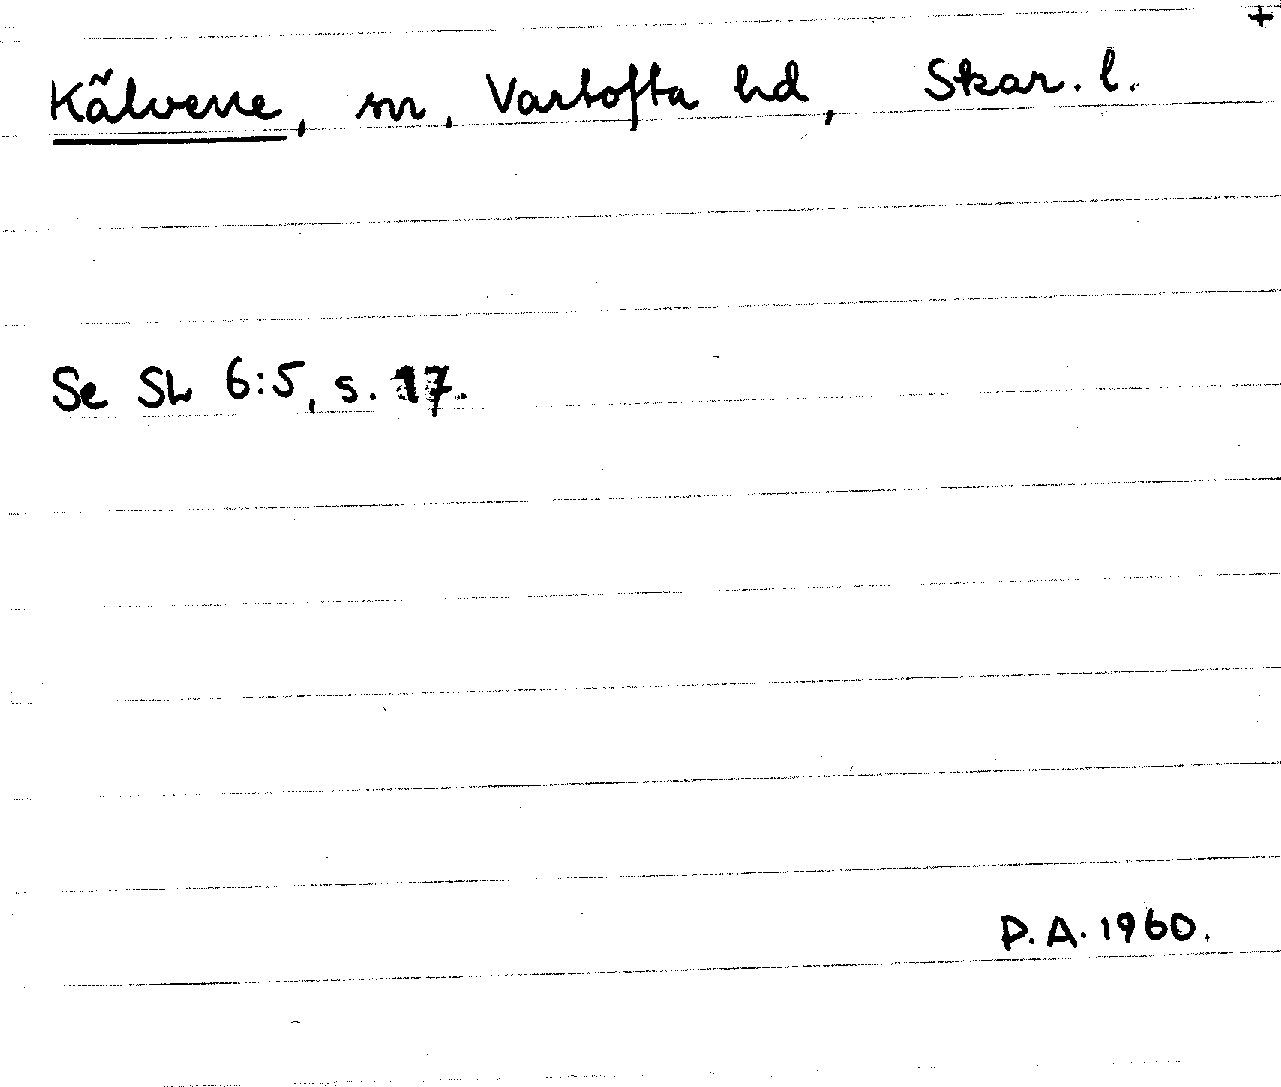 +
Kãlvene, sn, Vartofta hd, Skar. l.
Se SL 6:5, s. 17.
P.A. 1960.